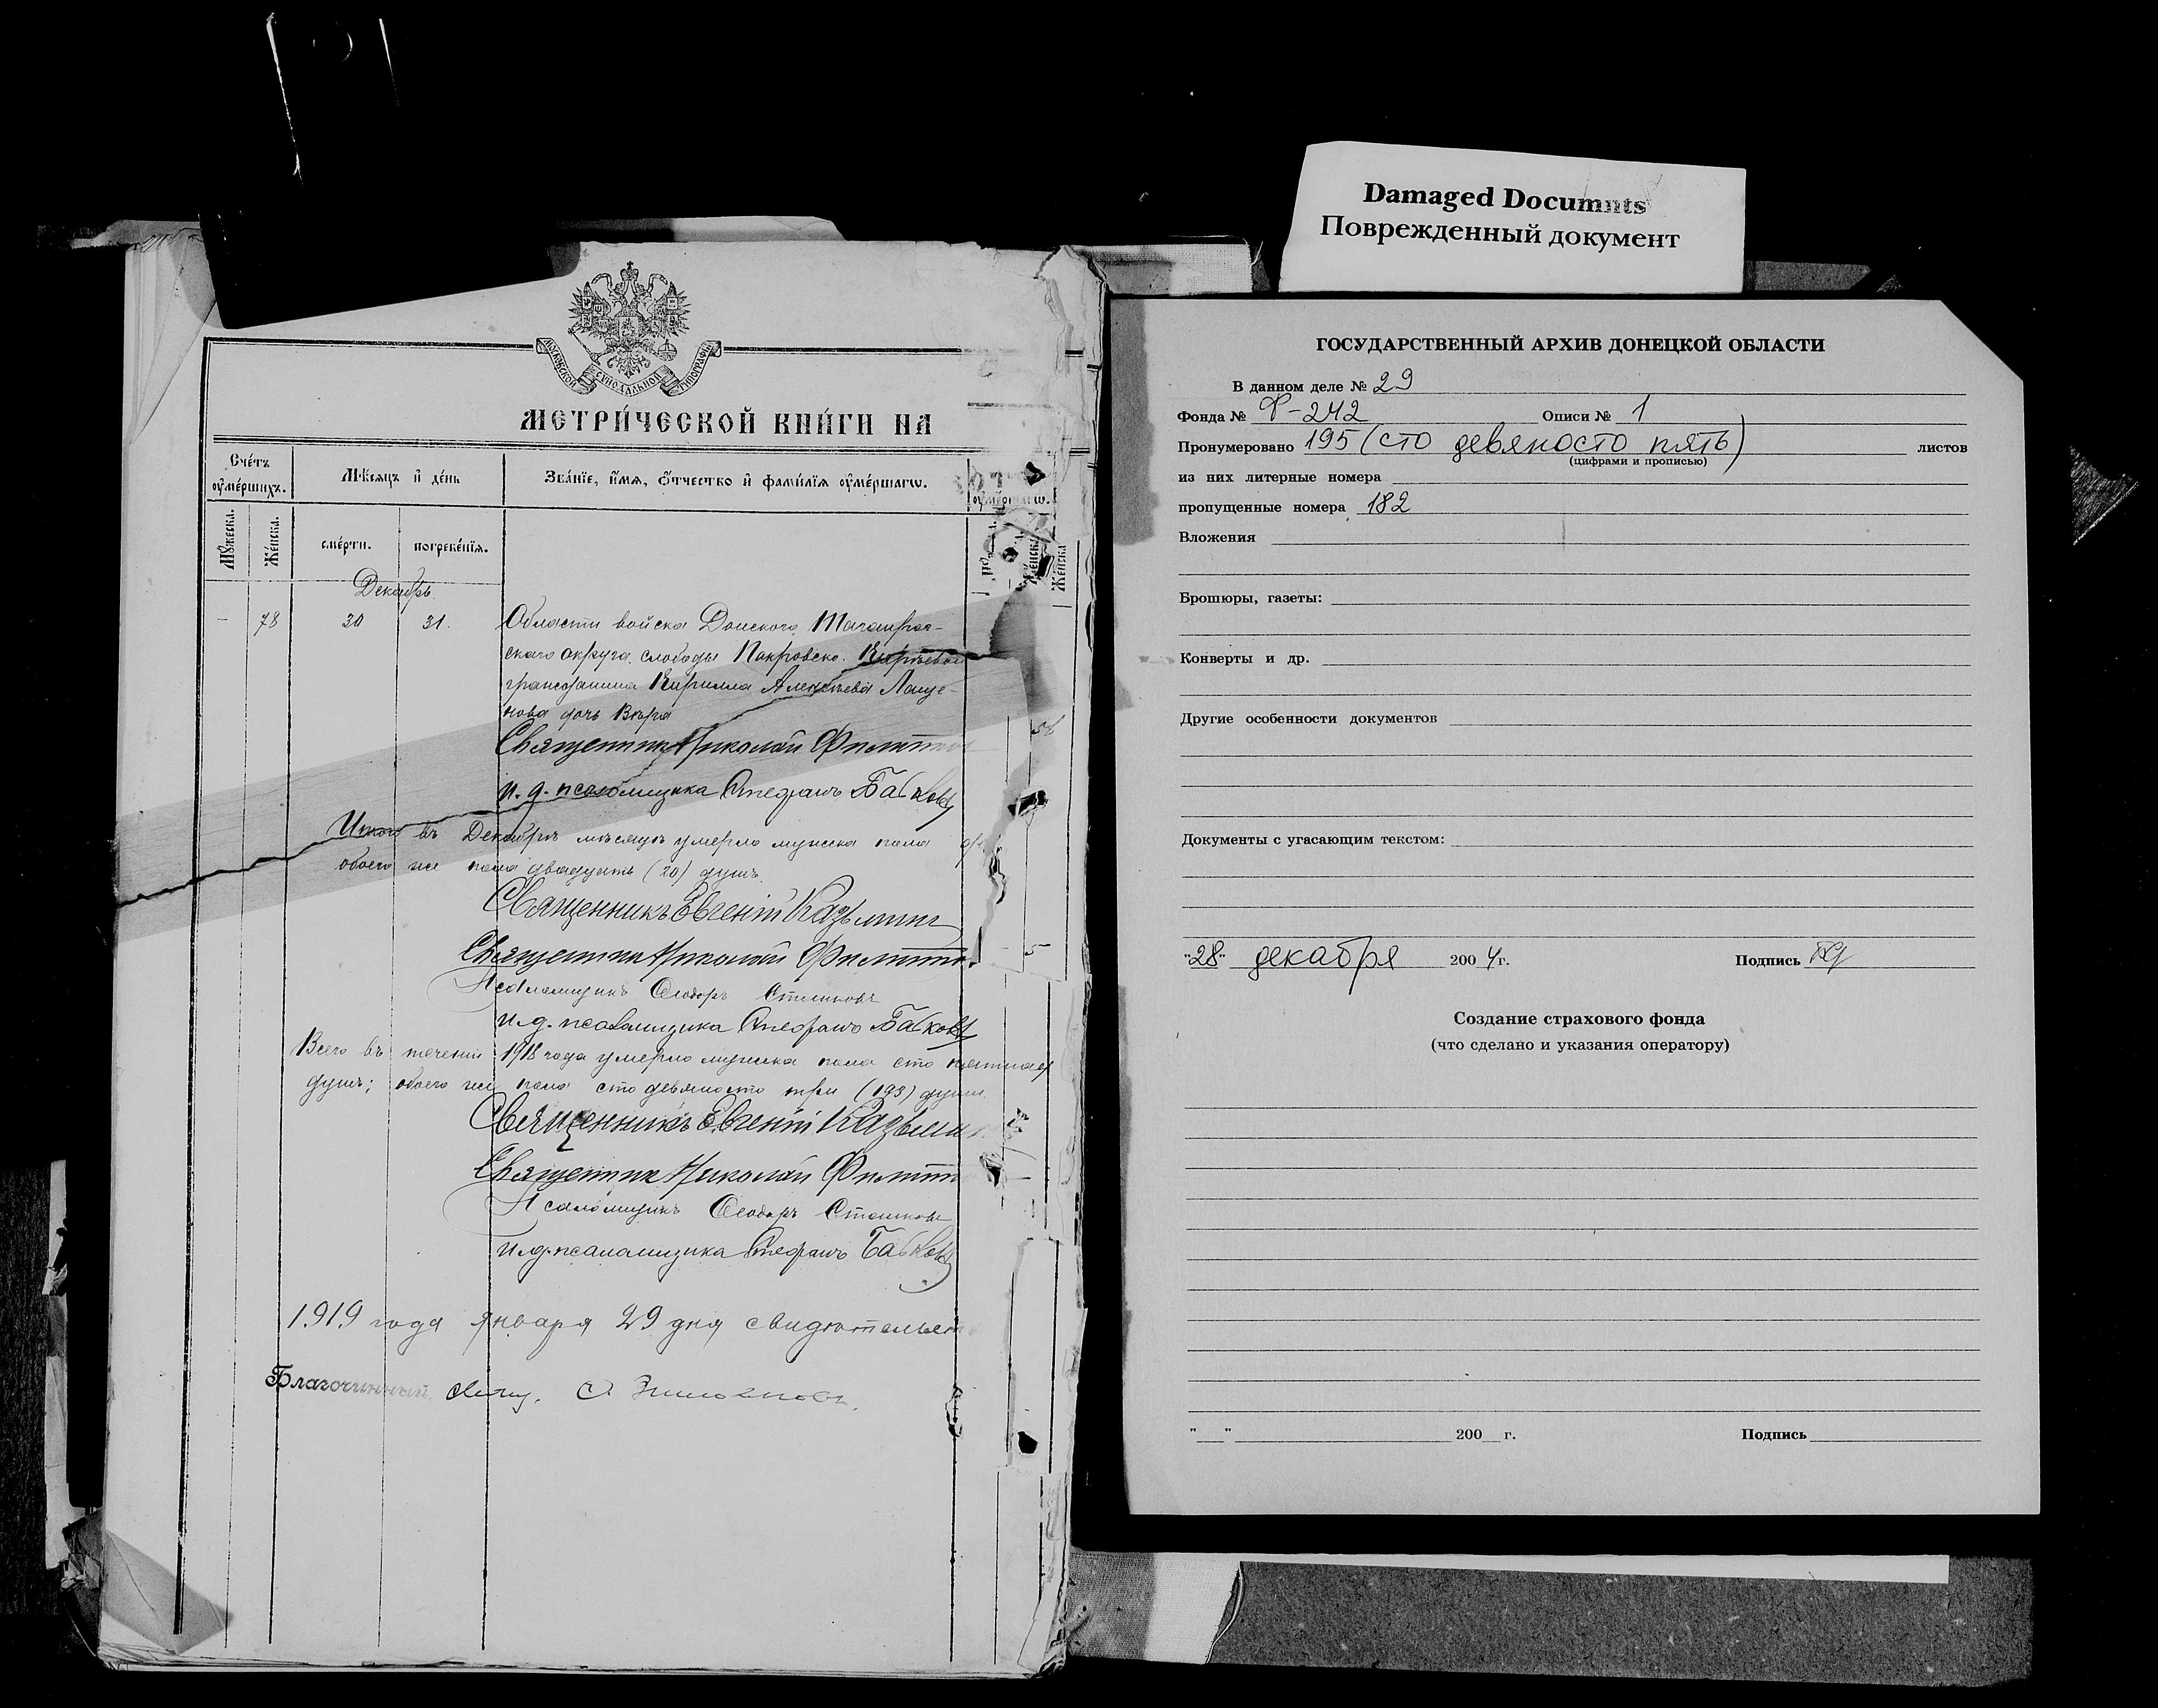 Damaged Documnts
Поврежденный документ
МОСКОВСКОЙ СУНОДАЛЬНОЙ ТИПОГРАФІИ
МЕТРИ́ЧЕСКОЙ КНИ́ГИ НА
Счётъ ᲂумéршихъ.
Мѣсяцъ и день
Звáнїе, и́мѧ, ѻ́тчество и фамилїѧ ᲂумéршагѡ.
ᲂумéршагѡ.
Мꙋжеска.
Же́нска.
смéрти.
погребéнїѧ.
Же́нска
Декабрь
— 78 30 31. Области войска Донского, Таганрог-
скаго округа, слободы Покровско-Кирѣевой
гражданина Кирилла Алексѣева Лаще-
нова дочь Вѣра
Священникъ Николай
и. д. псаломщика Стефанъ Бабковъ
Итого въ Декабрѣ мѣсяцѣ умерло мужска пола
обоего же пола двадцать (20) душъ.
Священникъ Евгеній Казьминъ
Священникъ Николай
Псаломщикъ Ѳеодоръ
и. д. псаломщика Стефанъ Бабковъ
Всего въ теченіи 1918 года умерло мужска пола сто
душъ; обоего же пола сто девяносто три (193) души.
Священникъ Евгеній Казьмин
Священникъ Николай
Псаломщикъ Ѳеодоръ
и. д. псаломщика Стефанъ Бабковъ
1919 года января 29 дня
Благочинный
ГОСУДАРСТВЕННЫЙ АРХИВ ДОНЕЦКОЙ ОБЛАСТИ
В данном деле № 29
Фонда № Ф-242 Описи № 1
Пронумеровано 195 (сто девяносто пять) листов
(цифрами и прописью)
из них литерные номера
пропущенные номера 182
Вложения
Брошюры, газеты:
Конверты и др.
Другие особенности документов
Документы с угасающим текстом:
"28" декабря 2004 г. Подпись
Создание страхового фонда
(что сделано и указания оператору)
"__" 200__ г. Подпись